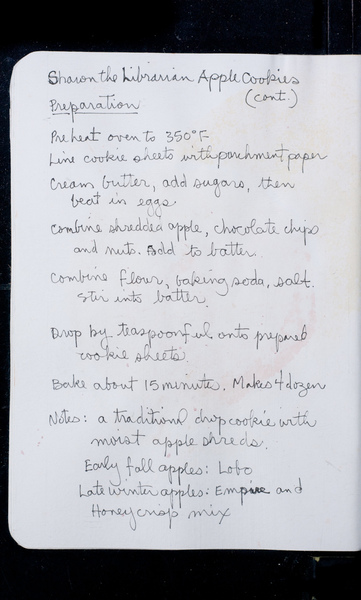 Sharon the Librarian Apple Cookies
(cont.)
Preparation
Preheat oven to 350°F
Line cookie sheets with parchment paper
Cream butter, add sugars, then
beat in eggs.
Combine shredded apple, chocolate chips
and nuts. Add to batter.
Combine flour, baking soda, salt.
Stir into batter.
Drop by teaspoonful onto prepared
cookie sheets.
Bake about 15 minutes. Makes 4 dozen
Notes: a traditional drop cookie with
moist apple shreds.
Early fall apples: Lobo
Late winter apples: Empire and
Honeycrisp mix